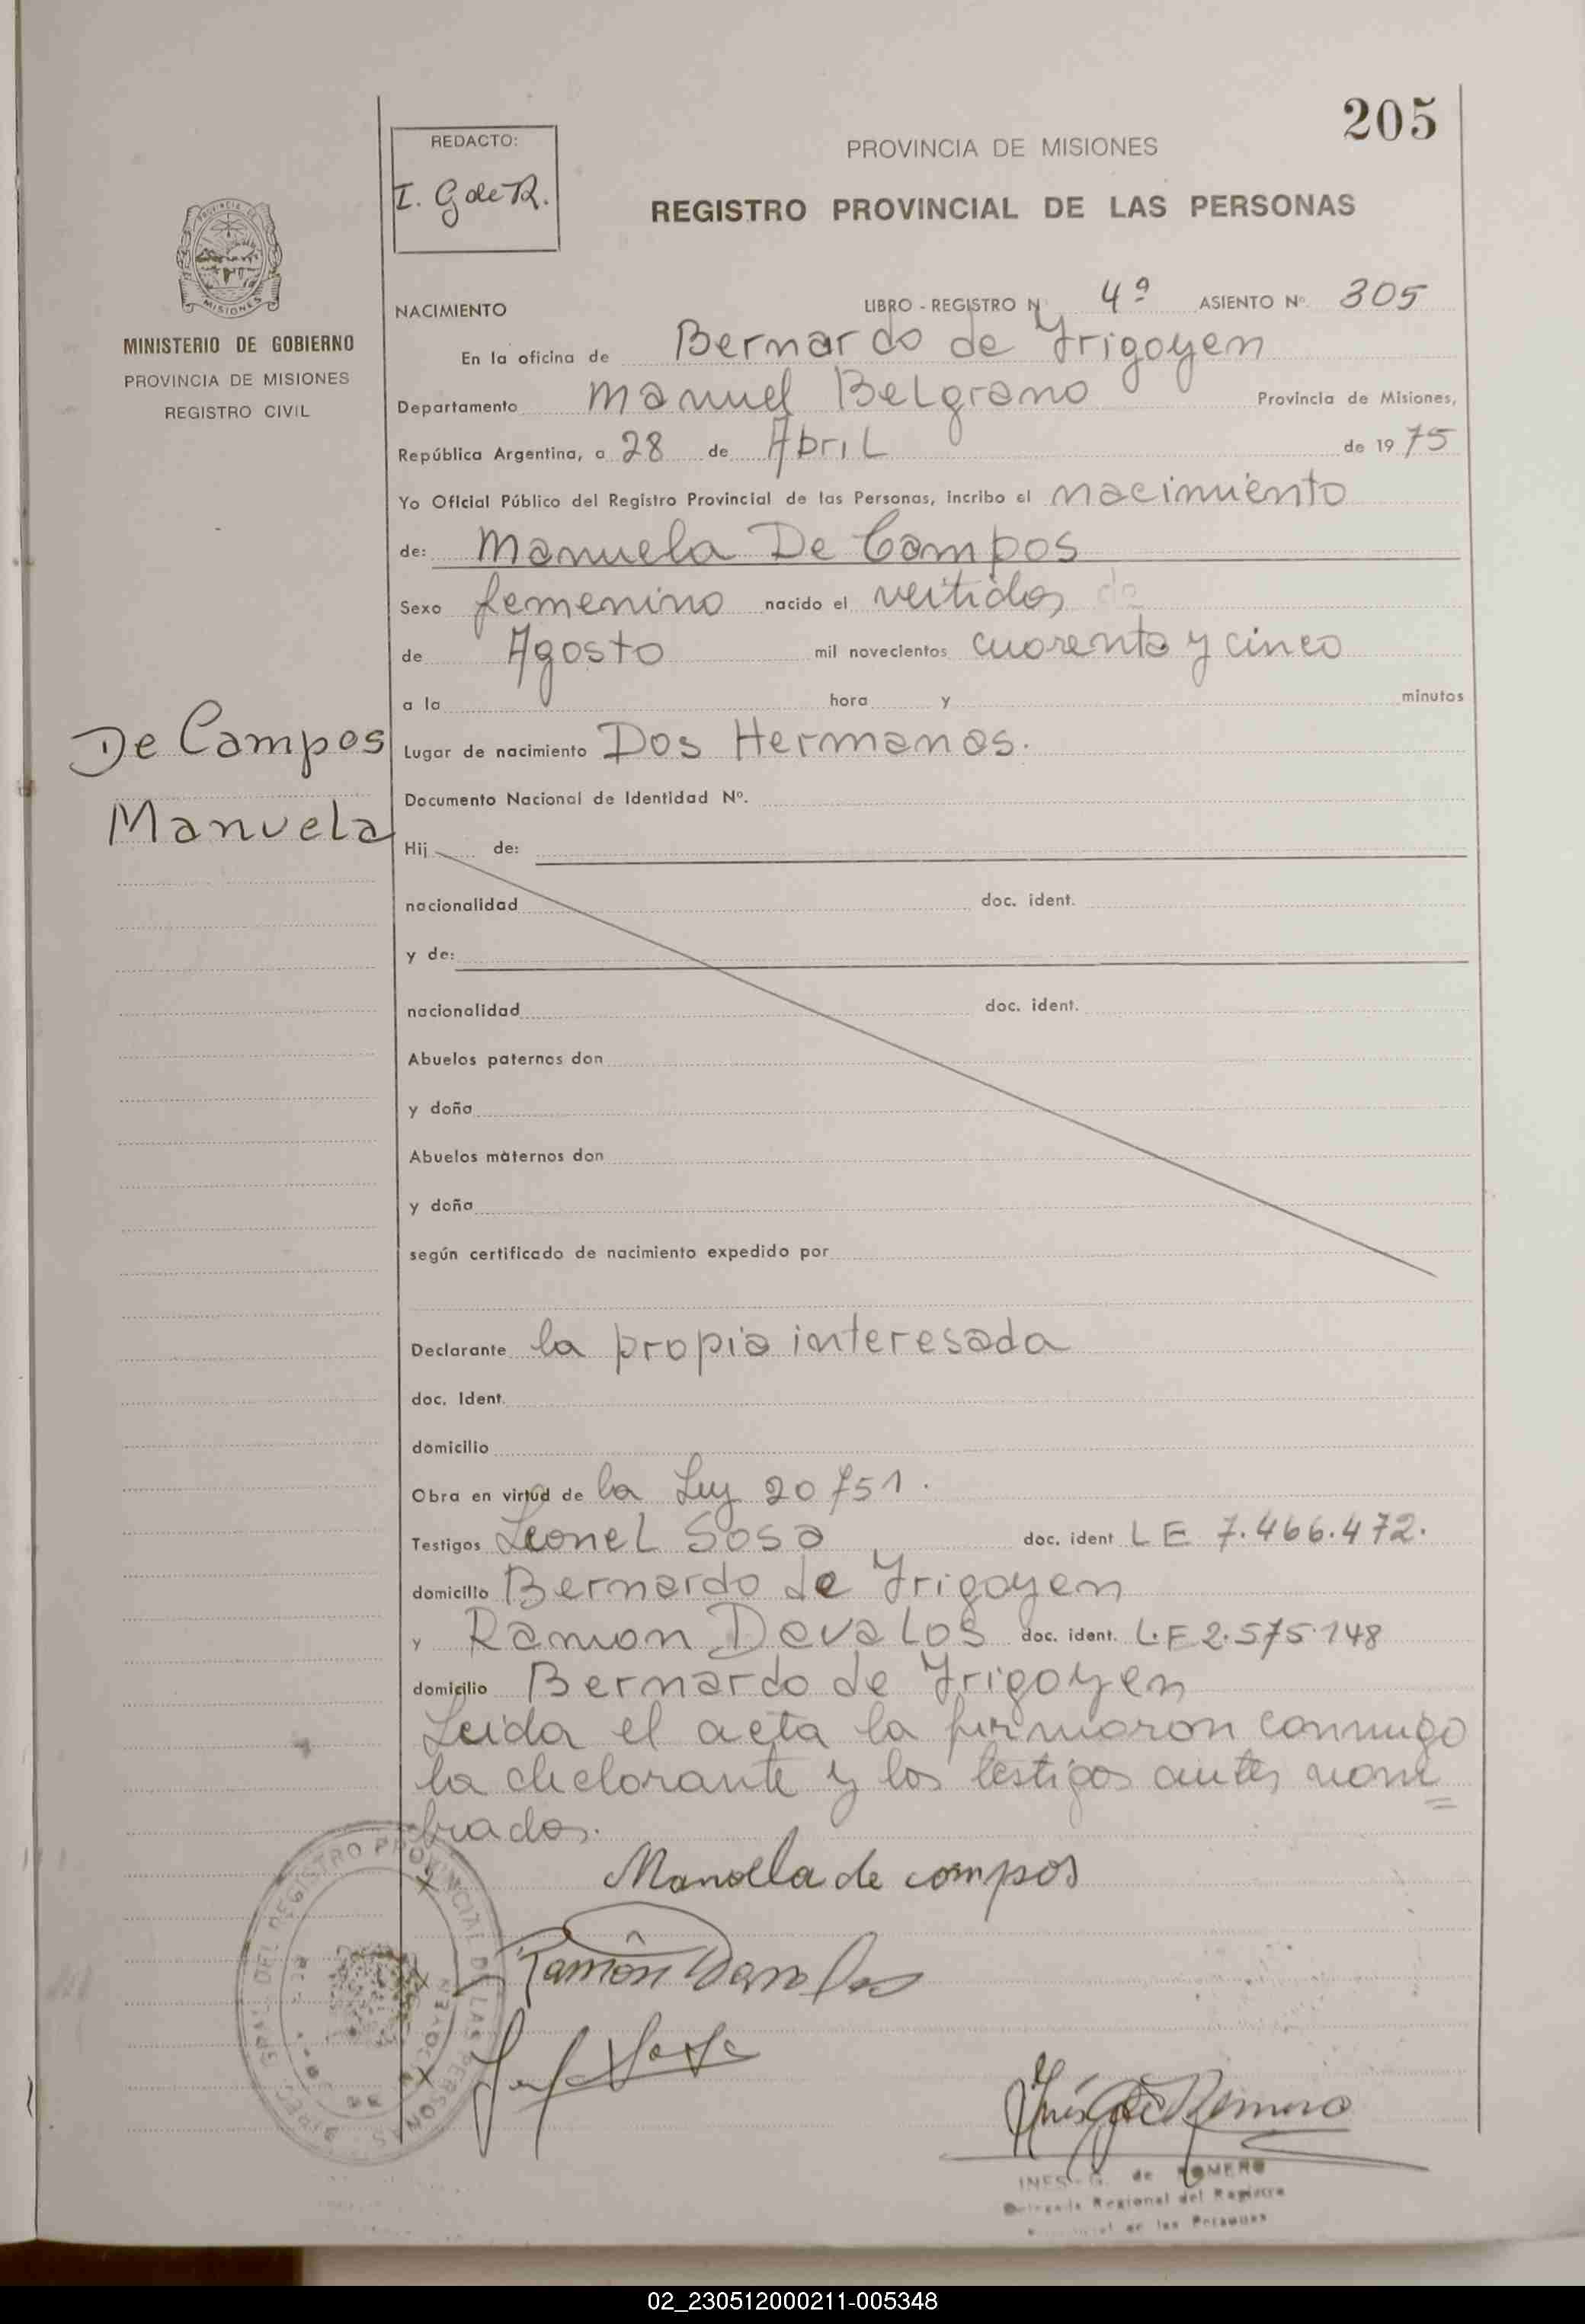 205
REDACTO:
I. G de R.
PROVINCIA DE MISIONES
REGISTRO PROVINCIAL DE LAS PERSONAS
MISIONES
MINISTERIO DE GOBIERNO
PROVINCIA DE MISIONES
REGISTRO CIVIL
NACIMIENTO LIBRO - REGISTRO N 4º ASIENTO Nº. 305
En la oficina de Bernardo de Yrigoyen
Departamento Manuel Belgrano Provincia de Misiones,
República Argentina, a 28 de Abril de 19 75
Yo Oficial Público del Registro Provincial de las Personas, incribo el nacimiento
de: Manuela De Campos
Sexo femenino nacido el veitidos
de Agosto mil novecientos cuarenta y cinco
a la hora y minutos
De Campos
Manuela
Lugar de nacimiento Dos Hermanas.
Documento Nacional de Identidad Nº.
Hij de:
nacionalidad doc. ident.
y de:
nacionalidad doc. ident.
Abuelos paternos don
y doña
Abuelos maternos don
y doña
según certificado de nacimiento expedido por
Declarante la propia interesada
doc. Ident.
domicilio
Obra en virtud de la Ley 20751.
Testigos Leonel Sosa doc. ident LE 7.466.472.
domicilio Bernardo de Yrigoyen
y Ramon Davalos doc. ident. L.E 2.575.148
domicilio Bernardo de Yrigoyen
Leida el acta la firmaron conmigo
la declarante y los testigos antes nom
brados.
Manoela de campos
Ramôn Davalos
Inés G de Romero
INES G. de ROMERO
Delegada Regional del Registro
de las Personas
02_230512000211-005348